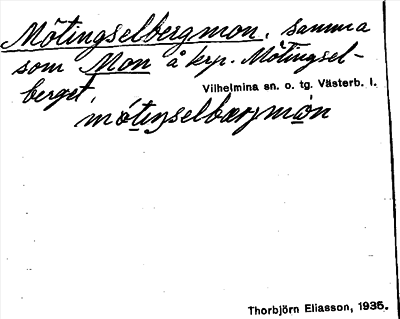 Mötingselbergmon, samma
som Mon å krp. Mötingsel-
berget.
Vilhelmina sn. o. tg. Västerb. l.
mótiŋselbærjmòn
Thorbjörn Eliasson, 1935.